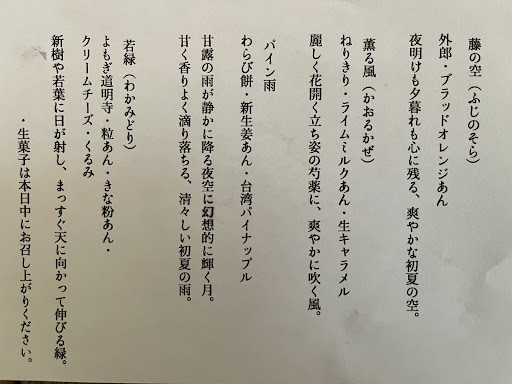 藤の空（ふじのそら）
外郎・ブラッドオレンジあん
夜明けも夕暮れも心に残る、爽やかな初夏の空。
薫る風（かおるかぜ）
ねりきり・ライムミルクあん・生キャラメル
麗しく花開く立ち姿の芍薬に、爽やかに吹く風。
パイン雨
わらび餅・新生姜あん・台湾パイナップル
甘露の雨が静かに降る夜空に幻想的に輝く月。
甘く香りよく滴り落ちる、清々しい初夏の雨。
若緑（わかみどり）
よもぎ道明寺・粒あん・きな粉あん・
クリームチーズ・くるみ
新樹や若葉に日が射し、まっすぐ天に向かって伸びる緑。
・生菓子は本日中にお召し上がりください。